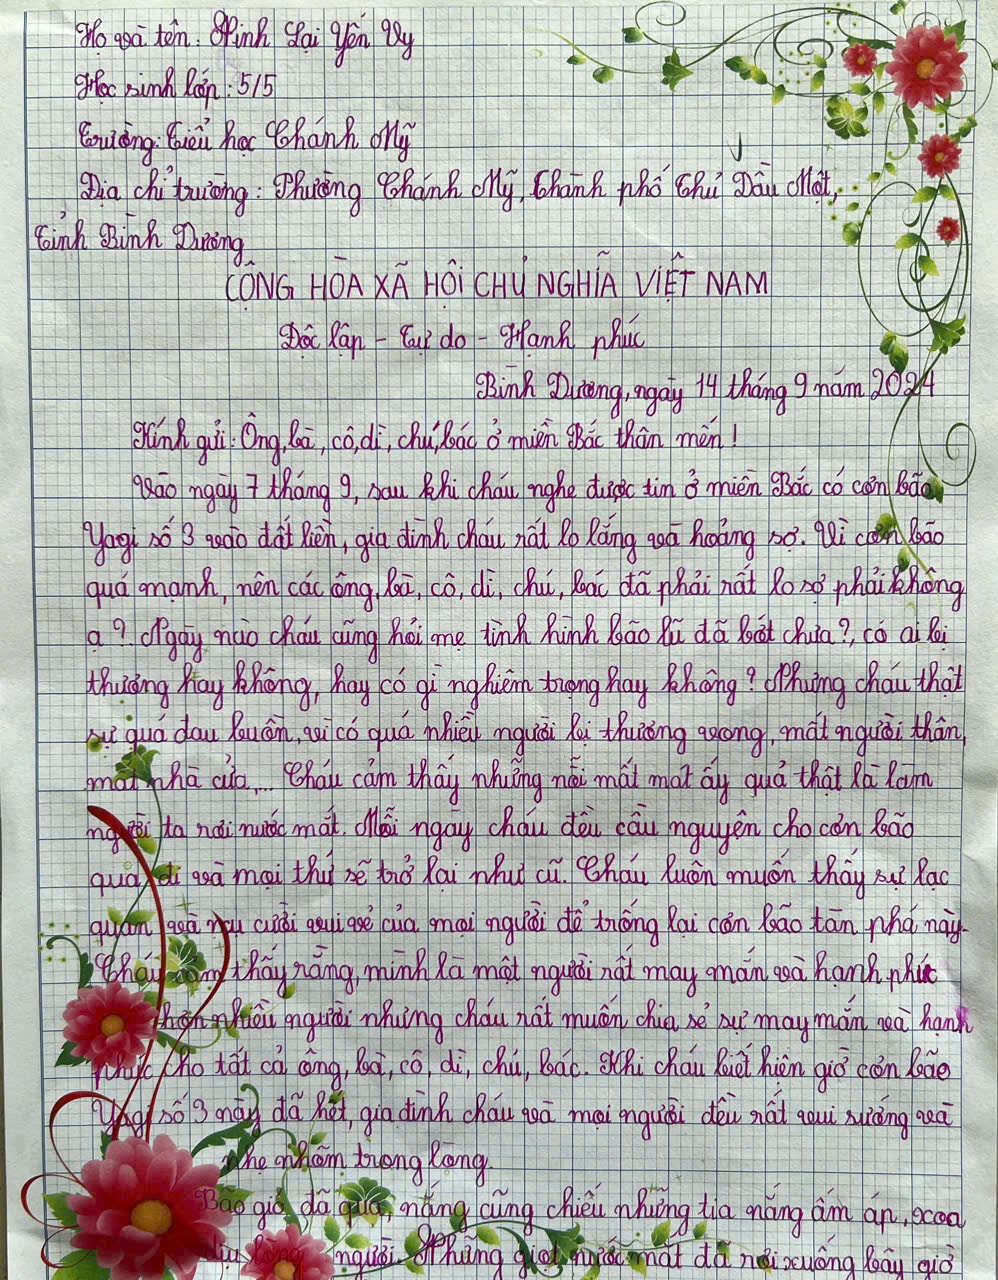 Họ và tên: Ninh Lại Yến Vy
Học sinh lớp: 5/5
Trường: Tiểu học Chánh Mỹ
Địa chỉ trường: Phường Chánh Mỹ, Thành phố Thủ Dầu Một,
Tỉnh Bình Dương
CỘNG HÒA XÃ HỘI CHỦ NGHĨA VIỆT NAM
Độc lập - Tự do - Hạnh phúc
Bình Dương, ngày 14 tháng 9 năm 2024
Kính gửi: Ông, bà, cô, dì, chú, bác ở miền Bắc thân mến!
Vào ngày 7 tháng 9, sau khi cháu nghe được tin ở miền Bắc có cơn bão
Yagi số 3 vào đất liền, gia đình cháu rất lo lắng và hoảng sợ. Vì cơn bão
quá mạnh, nên các ông, bà, cô, dì, chú, bác đã phải rất lo sợ phải không
ạ? Ngày nào cháu cũng hỏi mẹ tình hình bão lũ đã bớt chưa?, có ai bị
thương hay không, hay có gì nghiêm trọng hay không? Nhưng cháu thật
sự quá đau buồn, vì có quá nhiều người bị thương vong, mất người thân,
mất nhà cửa,... Cháu cảm thấy những nỗi mất mát ấy quả thật là làm
người ta rơi nước mắt. Mỗi ngày cháu đều cầu nguyện cho cơn bão
qua đi và mọi thứ sẽ trở lại như cũ. Cháu luôn muốn thấy sự lạc
quan và nụ cười vui vẻ của mọi người để trống lại cơn bão tàn phá này.
Cháu cảm thấy rằng, mình là một người rất may mắn và hạnh phúc
hơn nhiều người nhưng cháu rất muốn chia sẻ sự may mắn và hạnh
phúc cho tất cả ông, bà, cô, dì, chú, bác. Khi cháu biết hiện giờ cơn bão
Yagi số 3 này đã hết, gia đình cháu và mọi người đều rất vui sướng và
nhẹ nhõm trong lòng.
Bão giờ đã qua, nắng cũng chiếu những tia nắng ấm áp, xoa
dịu lòng người. Những giọt nước mắt đã rơi xuống bây giờ